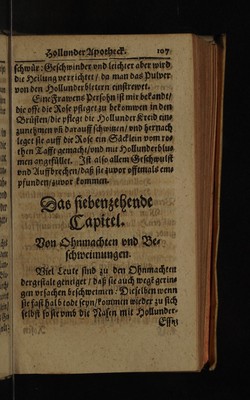 Hollunder Apotheck. 107
schwür: Geschwinder und leichter aber wird
die Heilung verrichtet / da man das Pulver
von den Hollunder bletern einstrewet.
Eine Frawens Persohn ist mir bekandt /
die offt die Rose pfleget zu bekommen in den
Brüsten / die pflegt die Hollunder Kreid ein-
zunehmen uñ darauff schwitzen / und hernach
leget sie auff die Rose ein Säcklein vom ro-
then Tafft gemacht / und mit Hollunderblu-
men angefüllet. Ist also allem Geschwulst
und Auffbrechen / daß sie zuvor offtmal em-
pfunden / zuvor kommen.
Das siebenzehende
Capitel.
Von Ohnmachten und Be-
schweimungen.
Viel Leute sind zu den Ohnmachten
dergestalt geneiget / daß sie auch wege gerin-
gen ursachen beschweimen: Dieselben wenn
sie fast halb todt seyn / kommen wieder zu sich
selbst so sie umb die Nasen mit Hollunder-
Essig